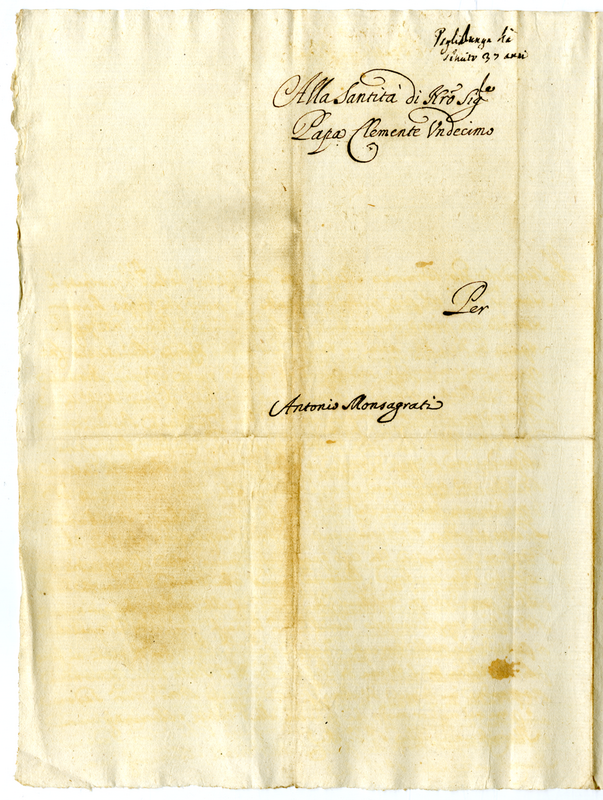 servito 37 anni
Alla Santità di Nrõ Sigre
Papa Clemente Undecimo
Per
Antonio Monsagrati